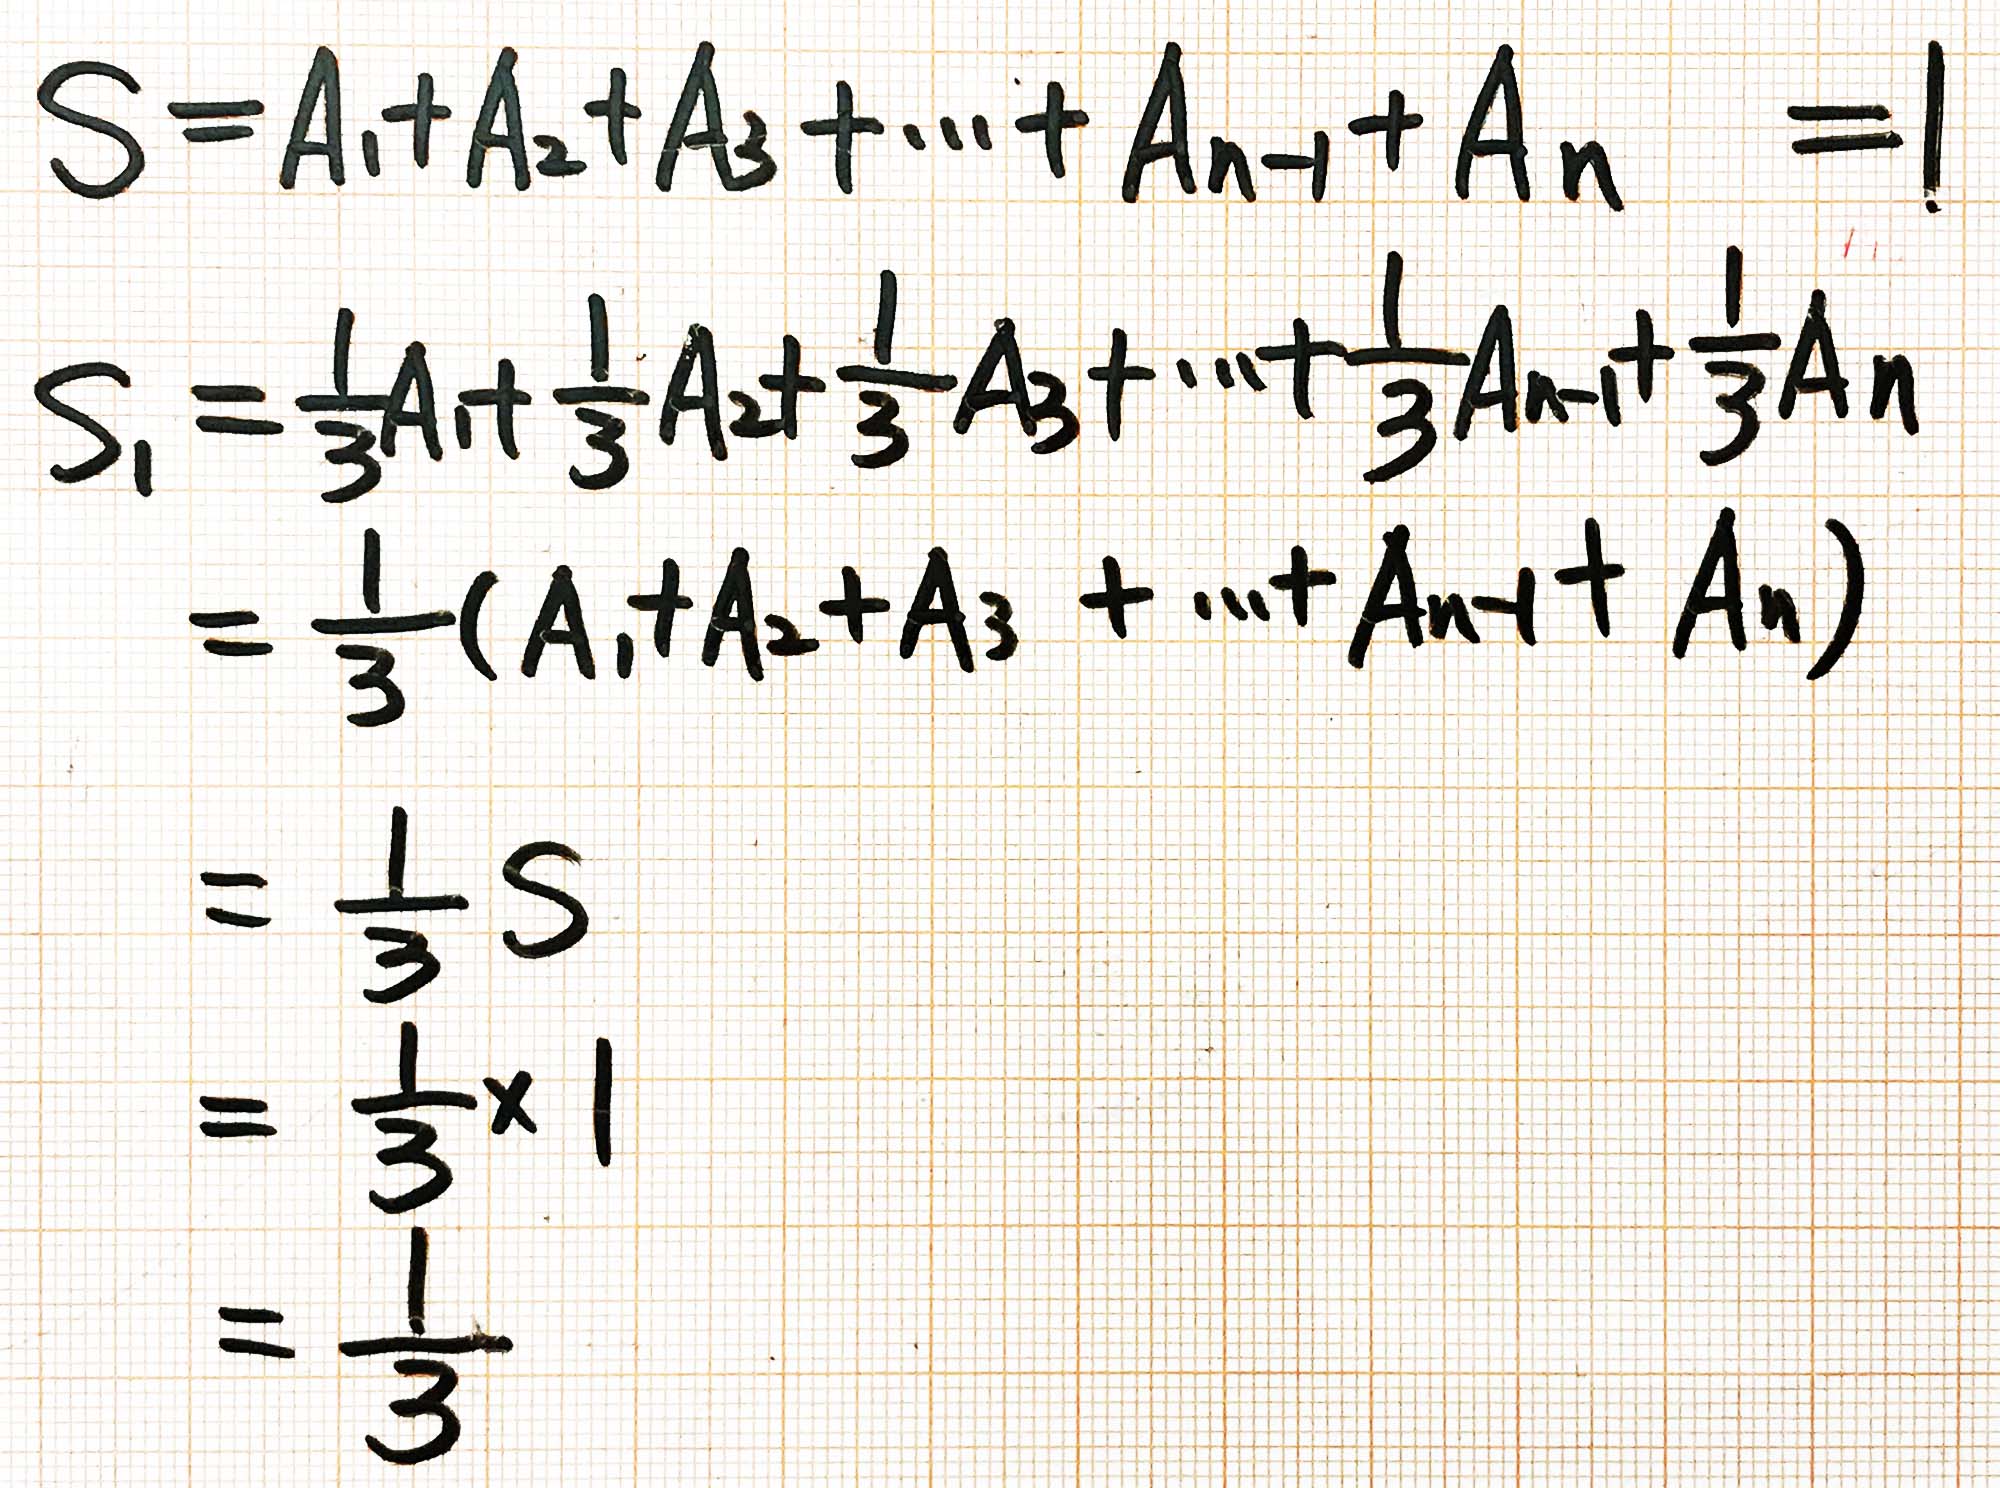 S = A₁ + A₂ + A₃ + ... + Aₙ₋₁ + Aₙ = 1
S₁ = 1/3 A₁ + 1/3 A₂ + 1/3 A₃ + ... + 1/3 Aₙ₋₁ + 1/3 Aₙ
= 1/3 (A₁ + A₂ + A₃ + ... + Aₙ₋₁ + Aₙ)
= 1/3 S
= 1/3 × 1
= 1/3